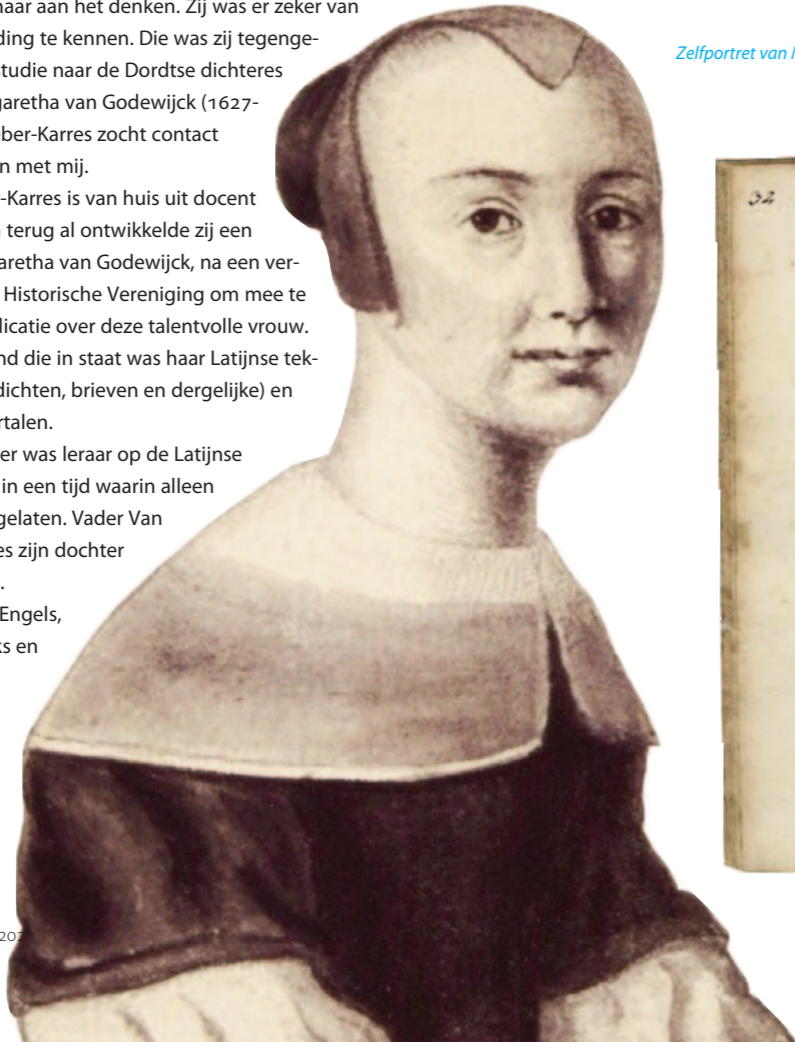 aar aan het denken. Zij was er zeker van
ding te kennen. Die was zij tegenge-
studie naar de Dordtse dichteres
garetha van Godewijck (1627-
ber-Karres zocht contact
n met mij.
-Karres is van huis uit docent
terug al ontwikkelde zij een
aretha van Godewijck, na een ver-
Historische Vereniging om mee te
licatie over deze talentvolle vrouw.
nd die in staat was haar Latijnse tek-
dichten, brieven en dergelijke) en
rtalen.
er was leraar op de Latijnse
in een tijd waarin alleen
gelaten. Vader Van
es zijn dochter
.
Engels,
ks en
202
Zelfportret van
32